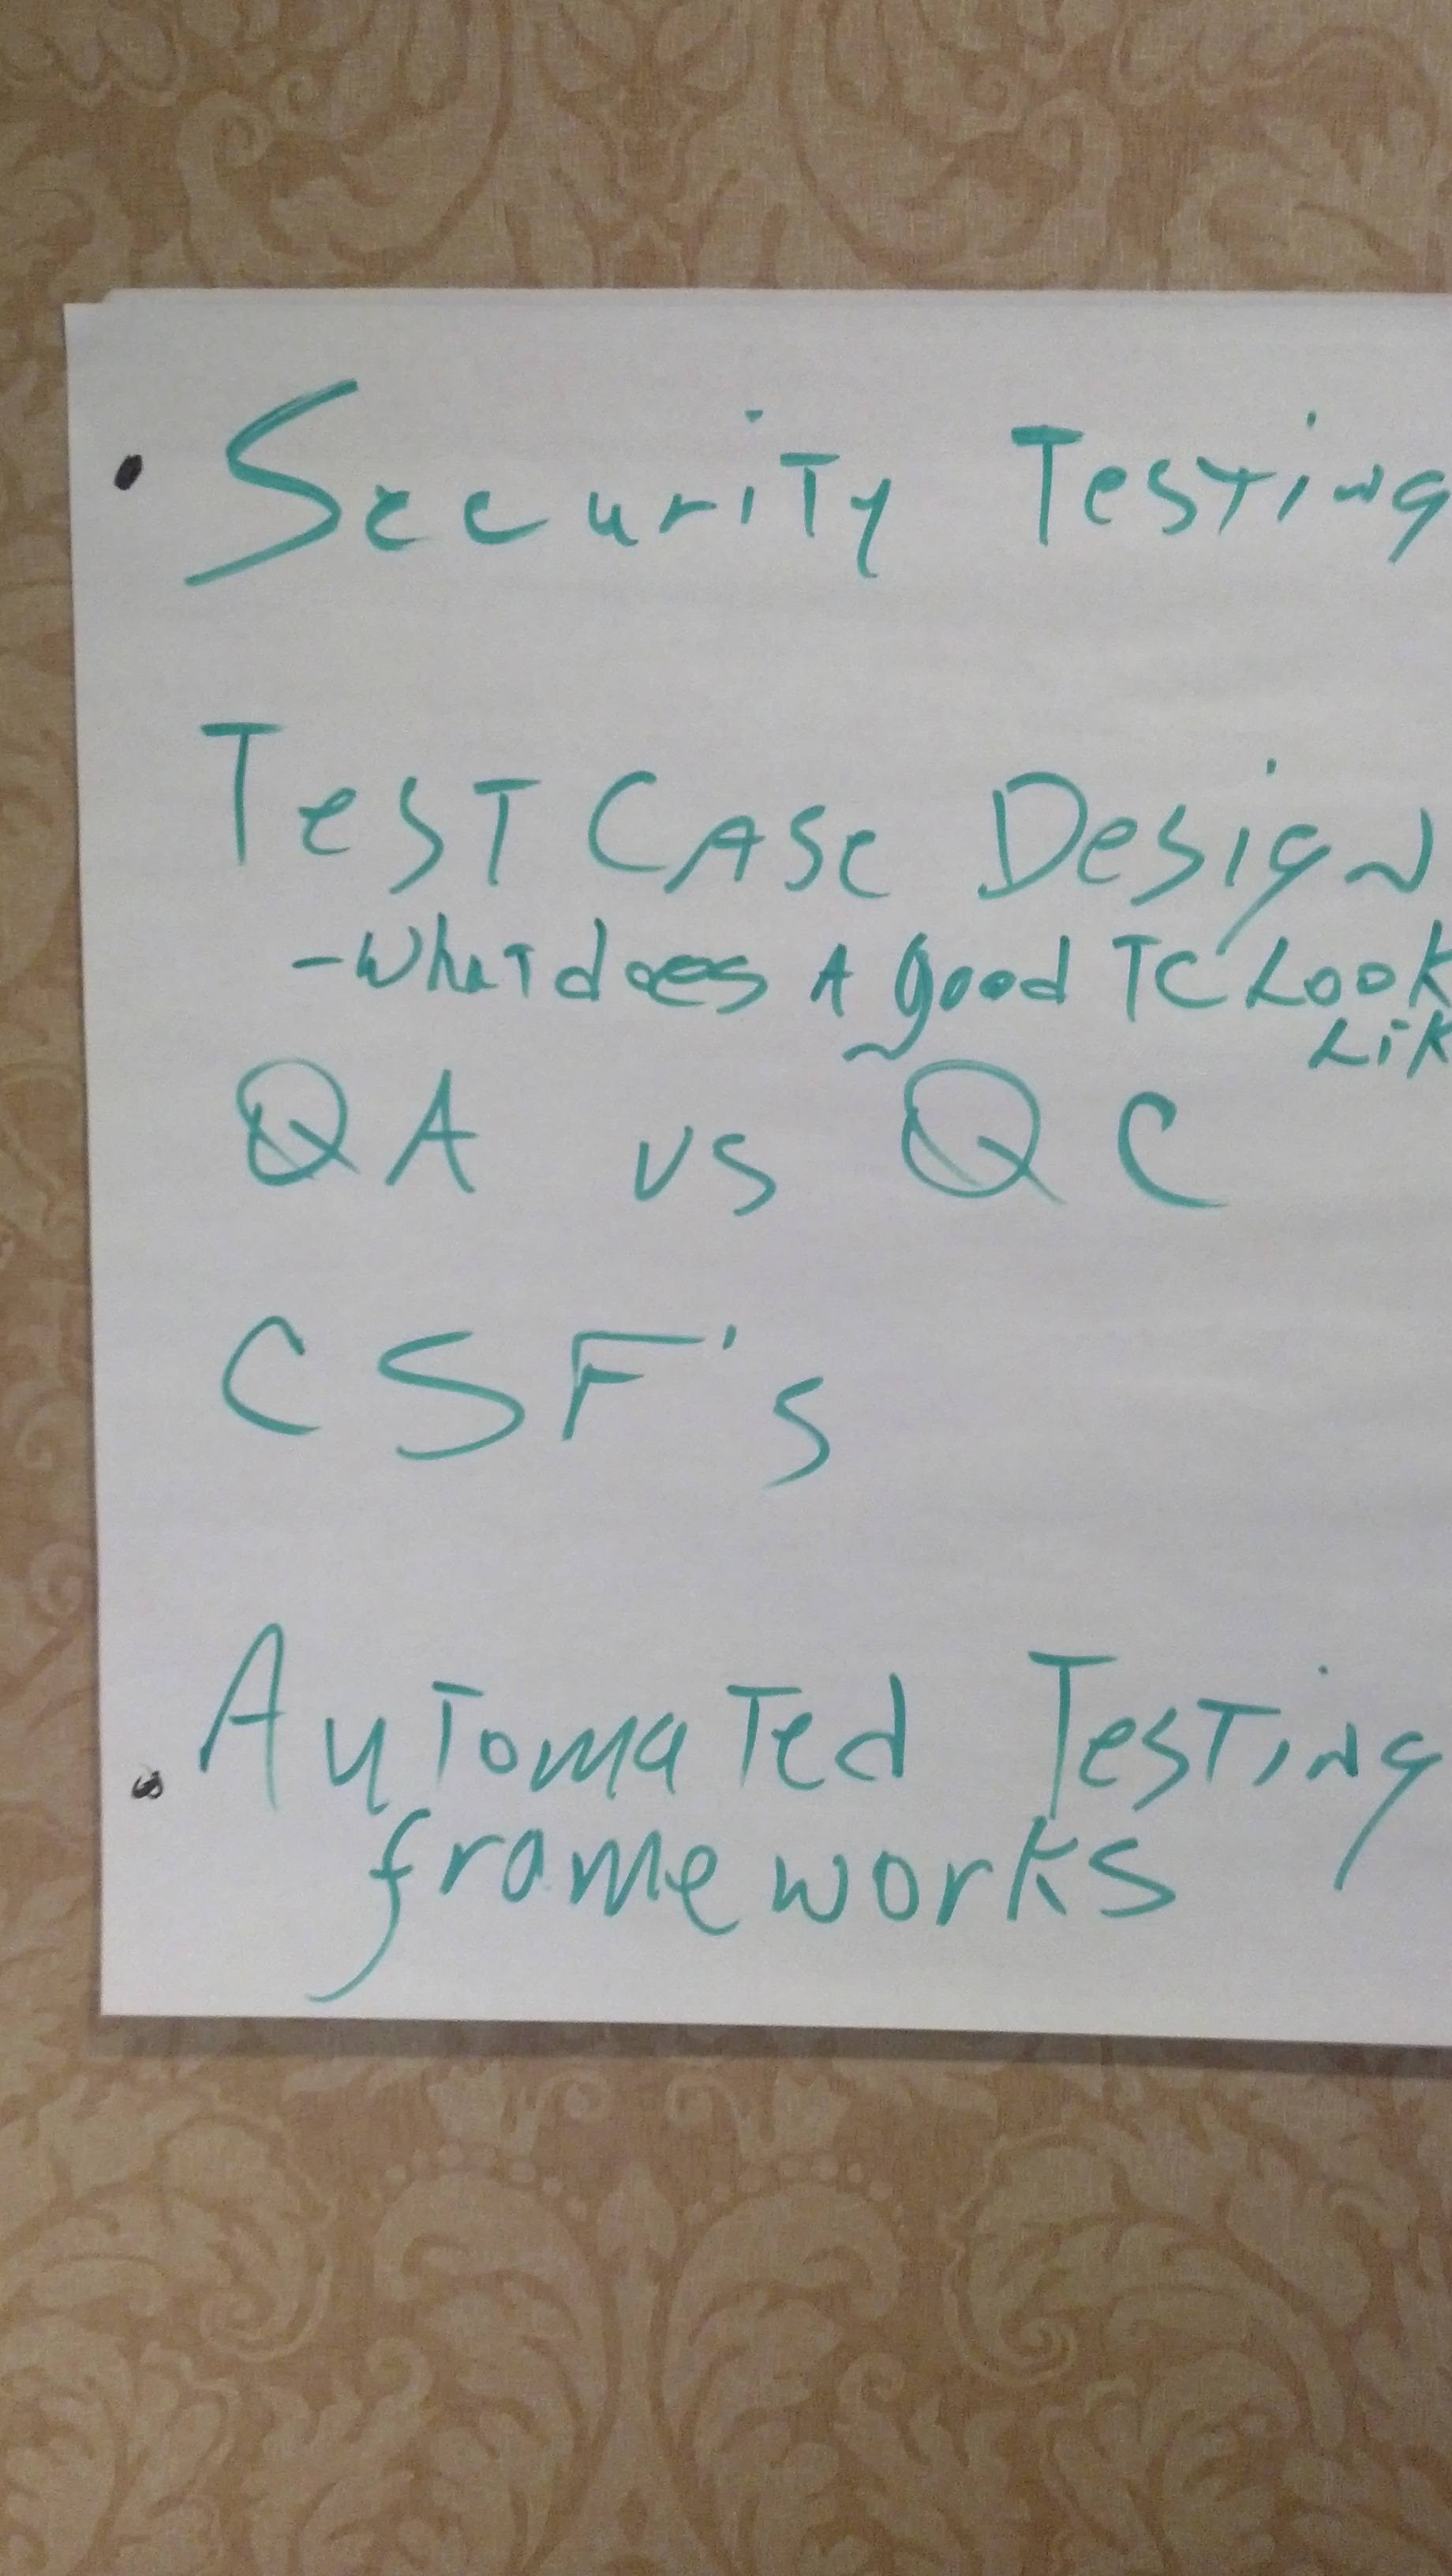 • Security Testing
Test Case Design
- What does A good TC Look
Lik
QA vs QC
CSF's
• Automated Testing
frameworks